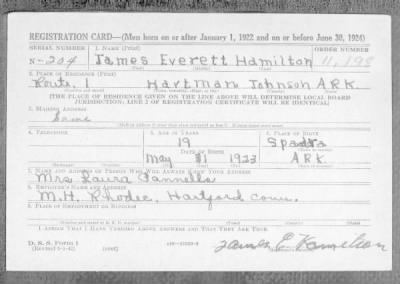 REGISTRATION CARD—(Men born on or after January 1, 1922 and on or before June 30, 1924)
SERIAL NUMBER 1. NAME (Print) ORDER NUMBER
N-204 James Everett Hamilton 11,198
(First) (Middle) (Last)
2. PLACE OF RESIDENCE (Print)
Route, 1 Hartman Johnson ARK.
[THE PLACE OF RESIDENCE GIVEN ON THE LINE ABOVE WILL DETERMINE LOCAL BOARD
JURISDICTION; LINE 2 OF REGISTRATION CERTIFICATE WILL BE IDENTICAL]
3. MAILING ADDRESS
Same
4. TELEPHONE 5. AGE IN YEARS 6. PLACE OF BIRTH
19 Spadra
DATE OF BIRTH
May 1923 ARK.
7. NAME AND ADDRESS OF PERSON WHO WILL ALWAYS KNOW YOUR ADDRESS
Mrs Laura
8. EMPLOYER'S NAME AND ADDRESS
M. H. Rhodes, Hartford Conn.
9. PLACE OF EMPLOYMENT OR BUSINESS
I AFFIRM THAT I HAVE VERIFIED ABOVE ANSWERS AND THAT THEY ARE TRUE.
D. S. S. Form 1 (over)
James E Hamilton